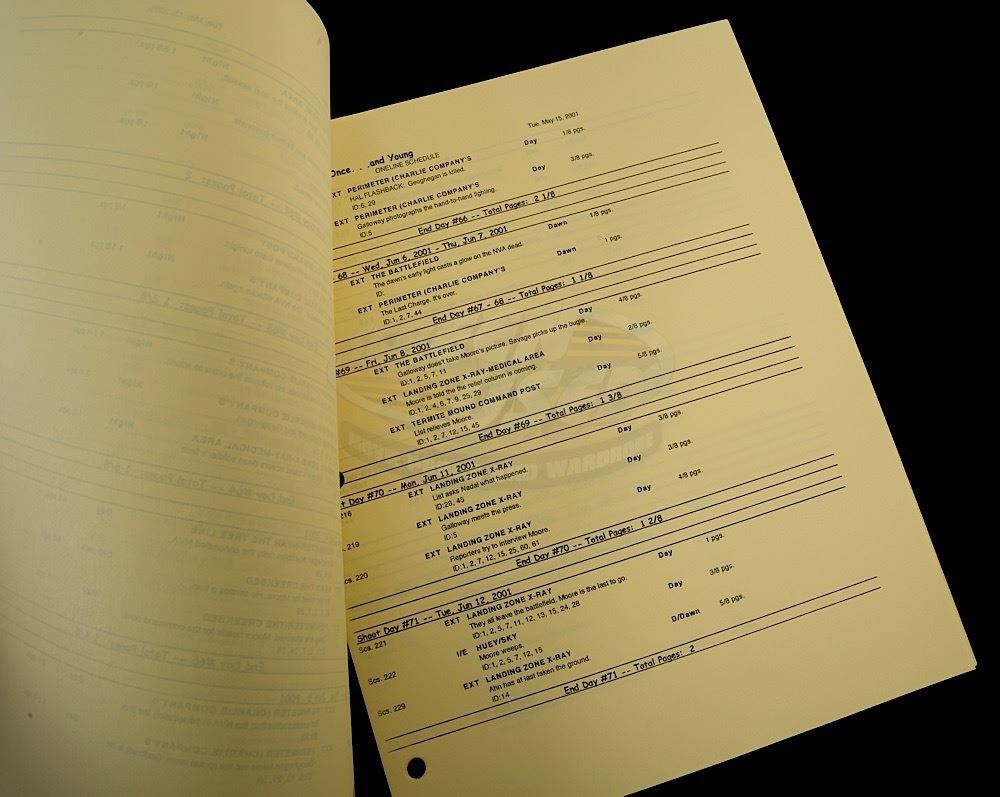 Tue, May 15, 2001
Once. . .and Young
ONELINE SCHEDULE
EXT PERIMETER (CHARLIE COMPANY'S Day 1/8 pgs.
HAL FLASHBACK: Geoghegan is killed.
ID:6, 29
EXT PERIMETER (CHARLIE COMPANY'S Day 3/8 pgs.
Galloway photographs the hand-to-hand fighting.
ID:5
End Day #66 -- Total Pages: 2 1/8
68 -- Wed, Jun 6, 2001 - Thu, Jun 7, 2001
EXT THE BATTLEFIELD Dawn 1/8 pgs.
The dawn's early light casts a glow on the NVA dead.
ID:
EXT PERIMETER (CHARLIE COMPANY'S Dawn 1 pgs.
The Last Charge. It's over.
ID:1, 2, 7, 44
End Day #67 - 68 -- Total Pages: 1 1/8
#69 -- Fri, Jun 8, 2001
EXT THE BATTLEFIELD Day 4/8 pgs.
Galloway doesn't take Moore's picture. Savage picks up the bugle.
ID:1, 2, 5, 7, 11
EXT LANDING ZONE X-RAY-MEDICAL AREA Day 2/8 pgs.
Moore is told the the relief column is coming.
ID:1, 2, 4, 5, 7, 9, 25, 29
EXT TERMITE MOUND COMMAND POST Day 5/8 pgs.
List relieves Moore.
ID:1, 2, 7, 12, 15, 45
End Day #69 -- Total Pages: 1 3/8
t Day #70 -- Mon, Jun 11, 2001
216 EXT LANDING ZONE X-RAY Day 3/8 pgs.
List asks Nadal what happened.
ID:28, 45
. 219 EXT LANDING ZONE X-RAY Day 3/8 pgs.
Galloway meets the press.
ID:5
cs. 220 EXT LANDING ZONE X-RAY Day 4/8 pgs.
Reporters try to interview Moore.
ID:1, 2, 7, 12, 15, 25, 60, 61
End Day #70 -- Total Pages: 1 2/8
Shoot Day #71 -- Tue, Jun 12, 2001
Scs. 221 EXT LANDING ZONE X-RAY Day 1 pgs.
They all leave the battlefield. Moore is the last to go.
ID:1, 2, 5, 7, 11, 12, 13, 15, 24, 28
Scs. 222 I/E HUEY/SKY Day 3/8 pgs.
Moore weeps.
ID:1, 2, 5, 7, 12, 15
Scs. 229 EXT LANDING ZONE X-RAY D/Dawn 5/8 pgs.
Ahn has at last taken the ground.
ID:14
End Day #71 -- Total Pages: 2